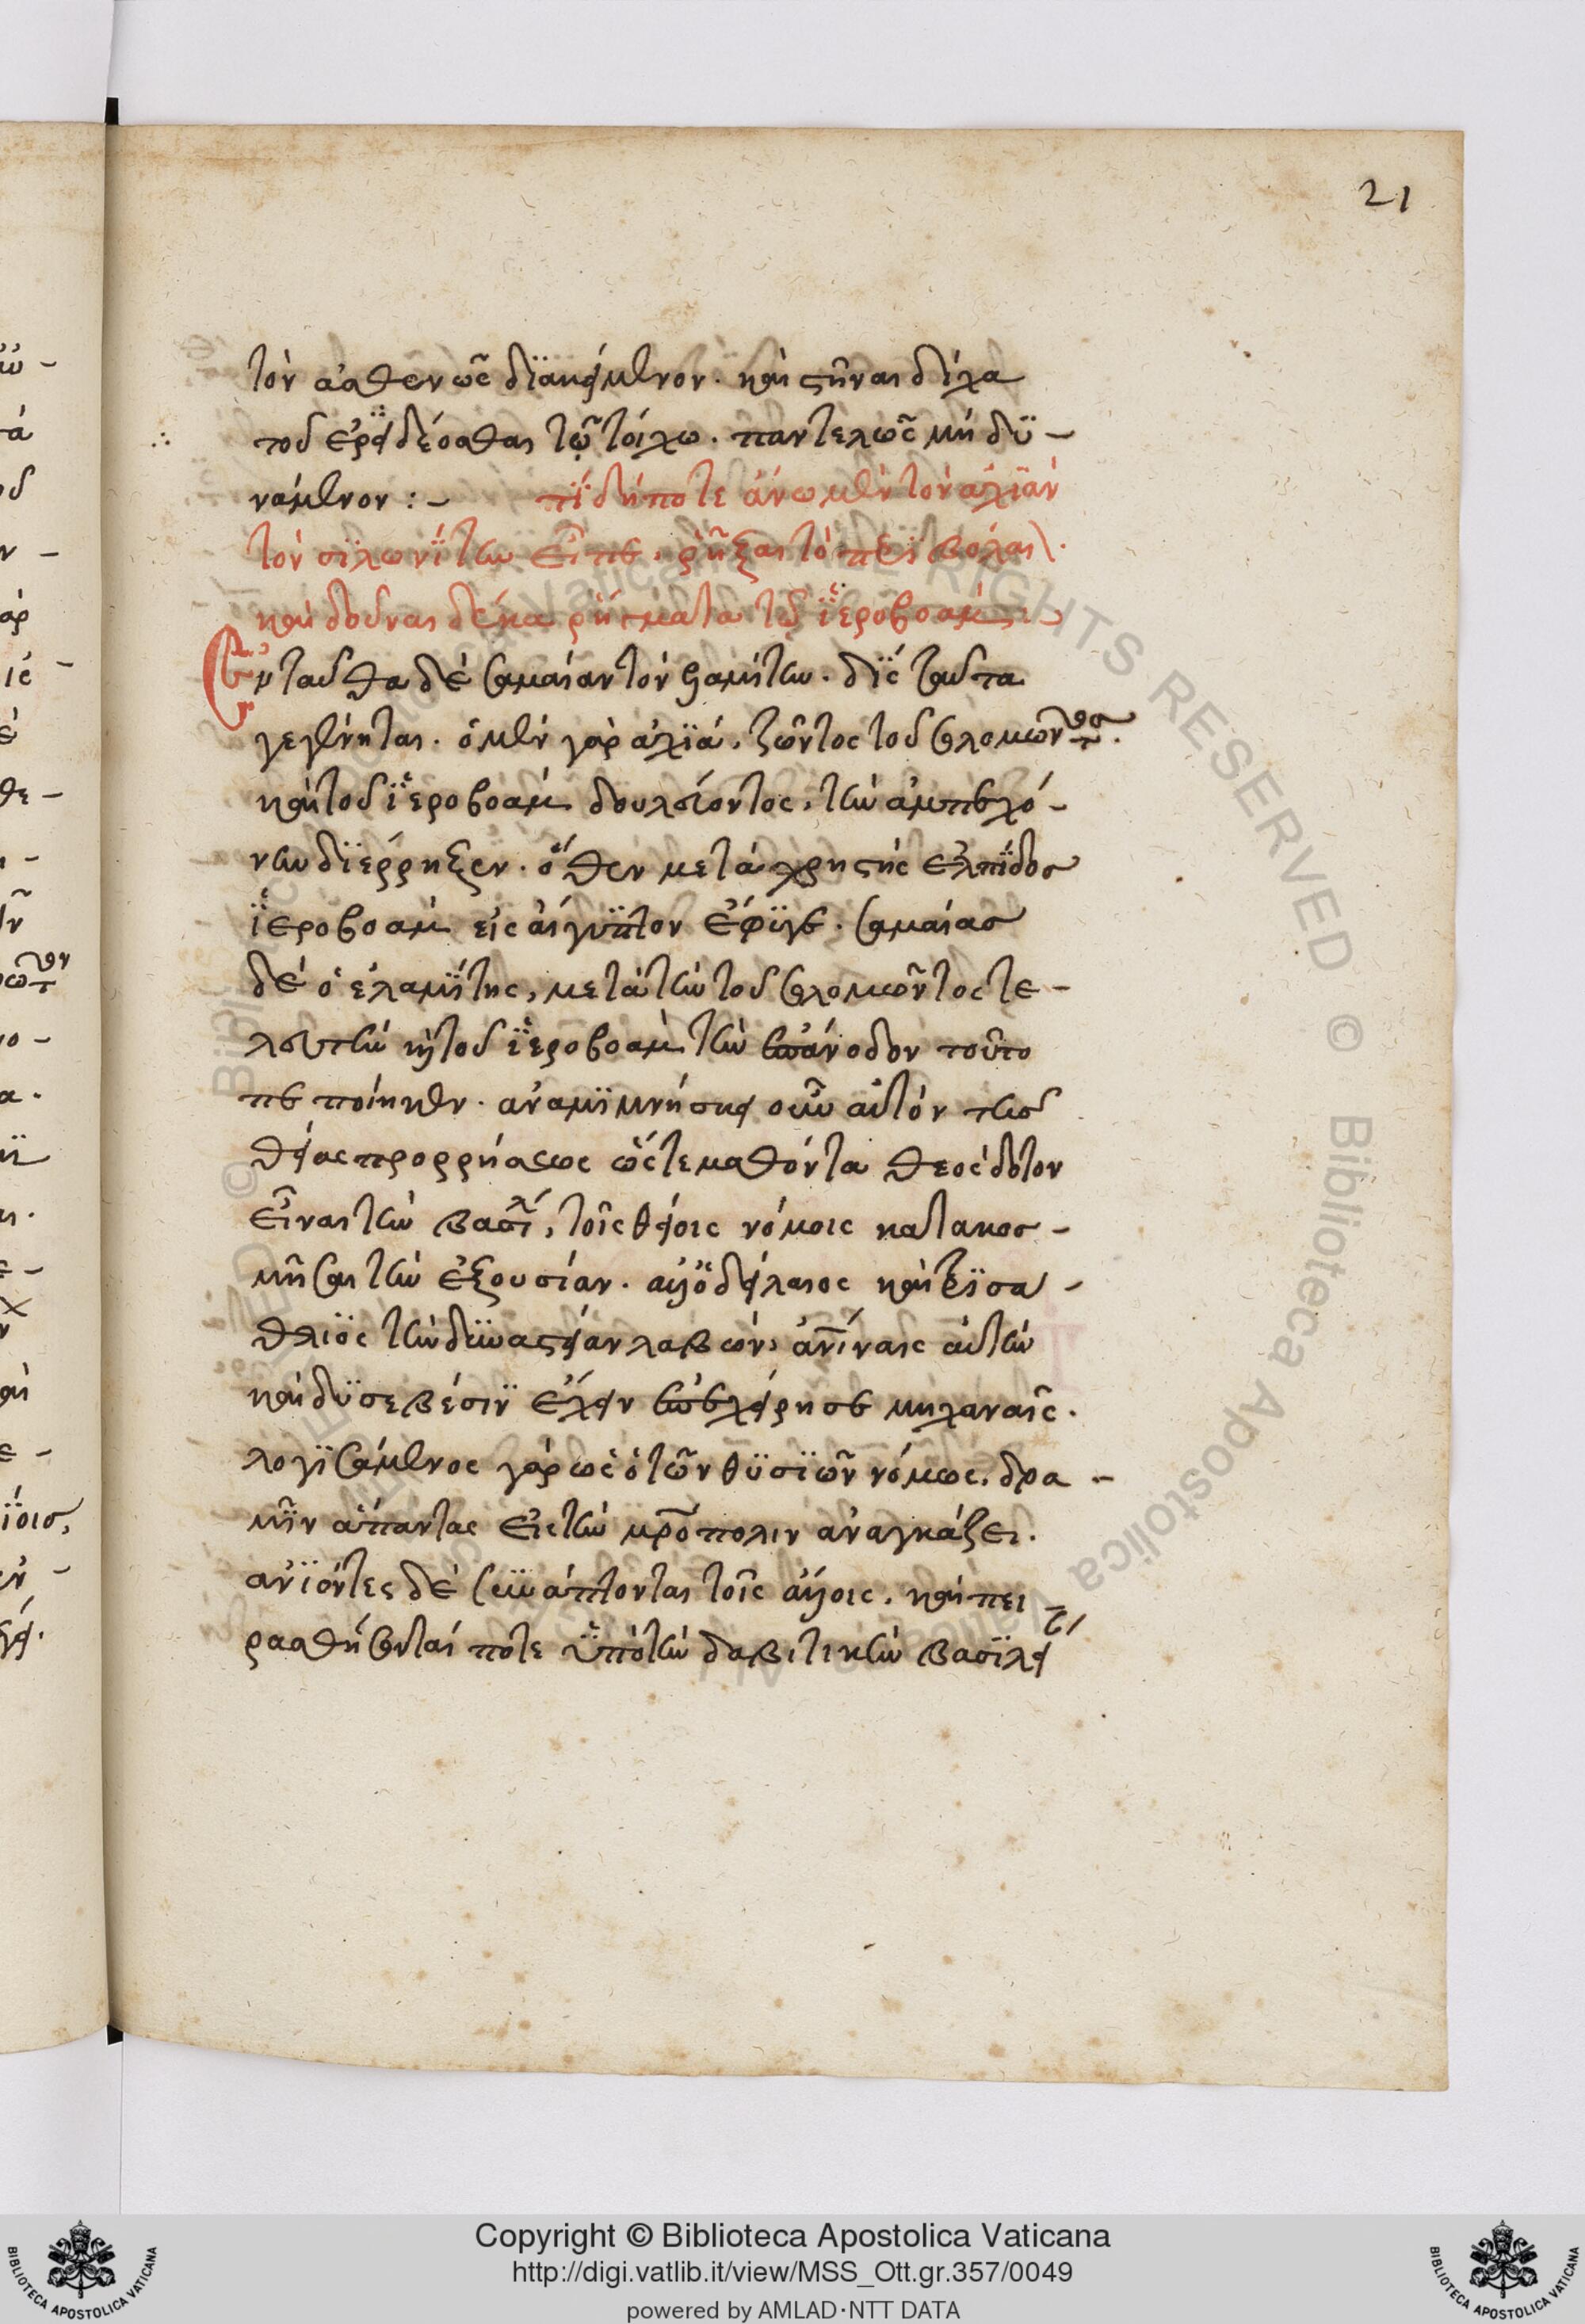 21
τὸν ἀσθενῶς διακείμενον. καὶ στῆναι δίχα
τοῦ ἐρείδεσθαι τῷ τοίχω. παντελῶς μὴ δϋ-
νάμενον :-    τί δήποτε ἄνω μὲν τὸν ἀχιὰν
τὸν σϊλωνΐτην εἶπε. ῥῆξαι τὸ περιβόλαι.
καὶ δοῦναι δέκα ῥήγματα τῶ ϊεροβοάμ :-
ἐνταῦθα δὲ σαμαίαν τὸν ἐλαμίτην. δὶς ταῦτα
γεγένηται. ὁ μὲν γὰρ ἀχϊά. ζῶντος τοῦ σολομῶντος.
καὶ τοῦ ϊεροβοάμ δουλεύοντος, τὴν ἀμπεχό-
νην διέρρηξεν. ὅθεν μετὰ χρηστῆς ἐλπίδος
ϊεροβοάμ εἰς αἴγυπτον ἔφϋγε. σαμαίας
δὲ ὁ ἐλαμΐτης, μετὰ τὴν τοῦ σολομῶντος τε-
λευτὴν καὶ τοῦ ϊεροβοάμ τὴν ἐπάνοδον τοῦτο
πεποίηκεν. ἀναμϊμνήσκει οὖν αὐτὸν τῆς
θείας προρρήσεως ὥστε μαθόντα θεόσδοτον
εἶναι τὴν βασιλεί, τοῖς θείοις νόμοις κατακοσ-
μῆσαι τὴν ἐξουσίαν. ἀλλ' ὁ δείλαιος καὶ τρϊσά-
θλιος τὴν δϋναστείαν λαβών, ἀνθρωπίναις αὐτὴν
καὶ δϋσεβέσιν ἔχειν ἐπεχείρησε μηχαναῖς.
λογισάμενος γὰρ ὡς ὁ τῶν θϋσϊῶν νόμος. δρα-
μεῖν ἅπαντας εἰς τὴν μητρόπολιν ἀναγκάζει.
ἀνιόντες δὲ συνάπτονται τοῖς ἄλλοις. καὶ πει-
ρασθήσονταί ποτε ὑπὸ τὴν δαβιτικὴν βασϊλεί
Copyright © Biblioteca Apostolica Vaticana
http://digi.vatlib.it/view/MSS_Ott.gr.357/0049
powered by AMLAD·NTT DATA